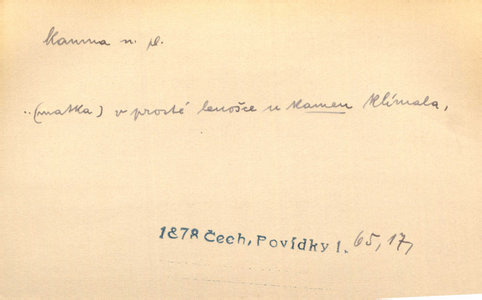 Kamna n. pl.
..(matka) v prosté lenošce u kamen klímala,
1878 Čech, Povídky 1. 65, 17,